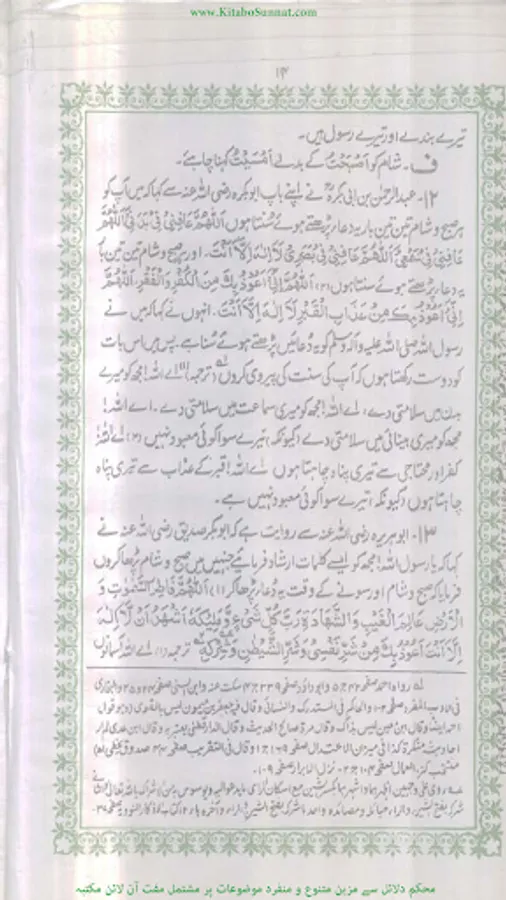 www.KitaboSunnat.com
۱۴
تیرے بندے اور تیرے رسول ہیں۔
ف۔ شام کو اَصْبَحْتُ کے بدلے اَمْسَیْتُ کہنا چاہئے۔
۱۲۔ عبدالرحمٰن بن ابی بکرہ نے اپنے باپ ابوبکرہ رضی اللہ عنہ سے کہا کہ میں آپ کو
ہر صبح و شام تین تین بار یہ دعا پڑھتے ہوئے سنتا ہوں اَللّٰهُمَّ عَافِنِيْ فِيْ بَدَنِيْ اَللّٰهُمَّ
عَافِنِيْ فِيْ سَمْعِيْ اَللّٰهُمَّ عَافِنِيْ فِيْ بَصَرِيْ لَا اِلٰهَ اِلَّا اَنْتَ۔ اور صبح و شام تین تین بار
یہ دعا پڑھتے ہوئے سنتا ہوں (۲) اَللّٰهُمَّ اِنِّيْ اَعُوْذُ بِكَ مِنَ الْكُفْرِ وَالْفَقْرِ۔ اَللّٰهُمَّ
اِنِّيْ اَعُوْذُ بِكَ مِنْ عَذَابِ الْقَبْرِ لَا اِلٰهَ اِلَّا اَنْتَ۔ انہوں نے کہا کہ میں نے
رسول اللہ صلی اللہ علیہ وآلہ وسلم کو یہ دعائیں پڑھتے ہوئے سنا ہے۔ پس میں اس بات
کو دوست رکھتا ہوں کہ آپ کی سنت کی پیروی کروں (ترجمہ) (۱) اے اللہ! مجھ کو میرے
بدن میں سلامتی دے، اے اللہ! مجھ کو میری سماعت میں سلامتی دے۔ اے اللہ!
مجھ کو میری بینائی میں سلامتی دے (کیونکہ) تیرے سوا کوئی معبود نہیں (۲) اے اللہ!
کفر اور محتاجی سے تیری پناہ چاہتا ہوں اے اللہ! قبر کے عذاب سے تیری پناہ
چاہتا ہوں (کیونکہ) تیرے سوا کوئی معبود نہیں ہے۔
۱۳۔ ابوہریرہ رضی اللہ عنہ سے روایت ہے کہ ابوبکر صدیق رضی اللہ عنہ نے
کہا کہ یا رسول اللہ! مجھ کو ایسے کلمات ارشاد فرمایئے جنہیں میں صبح و شام پڑھا کروں
فرمایا کہ صبح و شام اور سونے کے وقت یہ دعا پڑھا کر (۱) اَللّٰهُمَّ فَاطِرَ السَّمٰوٰتِ وَ
الْاَرْضِ عَالِمَ الْغَيْبِ وَالشَّهَادَةِ رَبَّ كُلِّ شَيْءٍ وَّمَلِيْكَهٗ اَشْهَدُ اَنْ لَّا اِلٰهَ
اِلَّا اَنْتَ اَعُوْذُ بِكَ مِنْ شَرِّ نَفْسِيْ وَشَرِّ الشَّيْطٰنِ وَشِرْكِهٖ ترجمہ (۱) اے اللہ آسمانوں
لہ رواہ احمد صفحہ ۴۲ ج ۵ وابو داؤد صفحہ ۳۳۹ ج ۴ سکت عنہ وابن السنی صفحہ ۲۴ و ۲۵ والبخاری
فی الادب المفرد صفحہ والحاکم فی المستدرک والنسائی وقال لیس بالقوی
وقال مرۃ صالح الحدیث وقال الدارقطنی یعتبر بہ وقال ابن عدی لم ار
احادیث منکرۃ کذا فی میزان الاعتدال صفحہ وقال فی التقریب صفحہ صدوق یخطی
منتخب کنز العمال صفحہ ۱۰۴ ج ۲۔ نزل الابرار صفحہ ۱۰۹۔
محکم دلائل سے مزین متنوع و منفرد موضوعات پر مشتمل مفت آن لائن مکتبہ